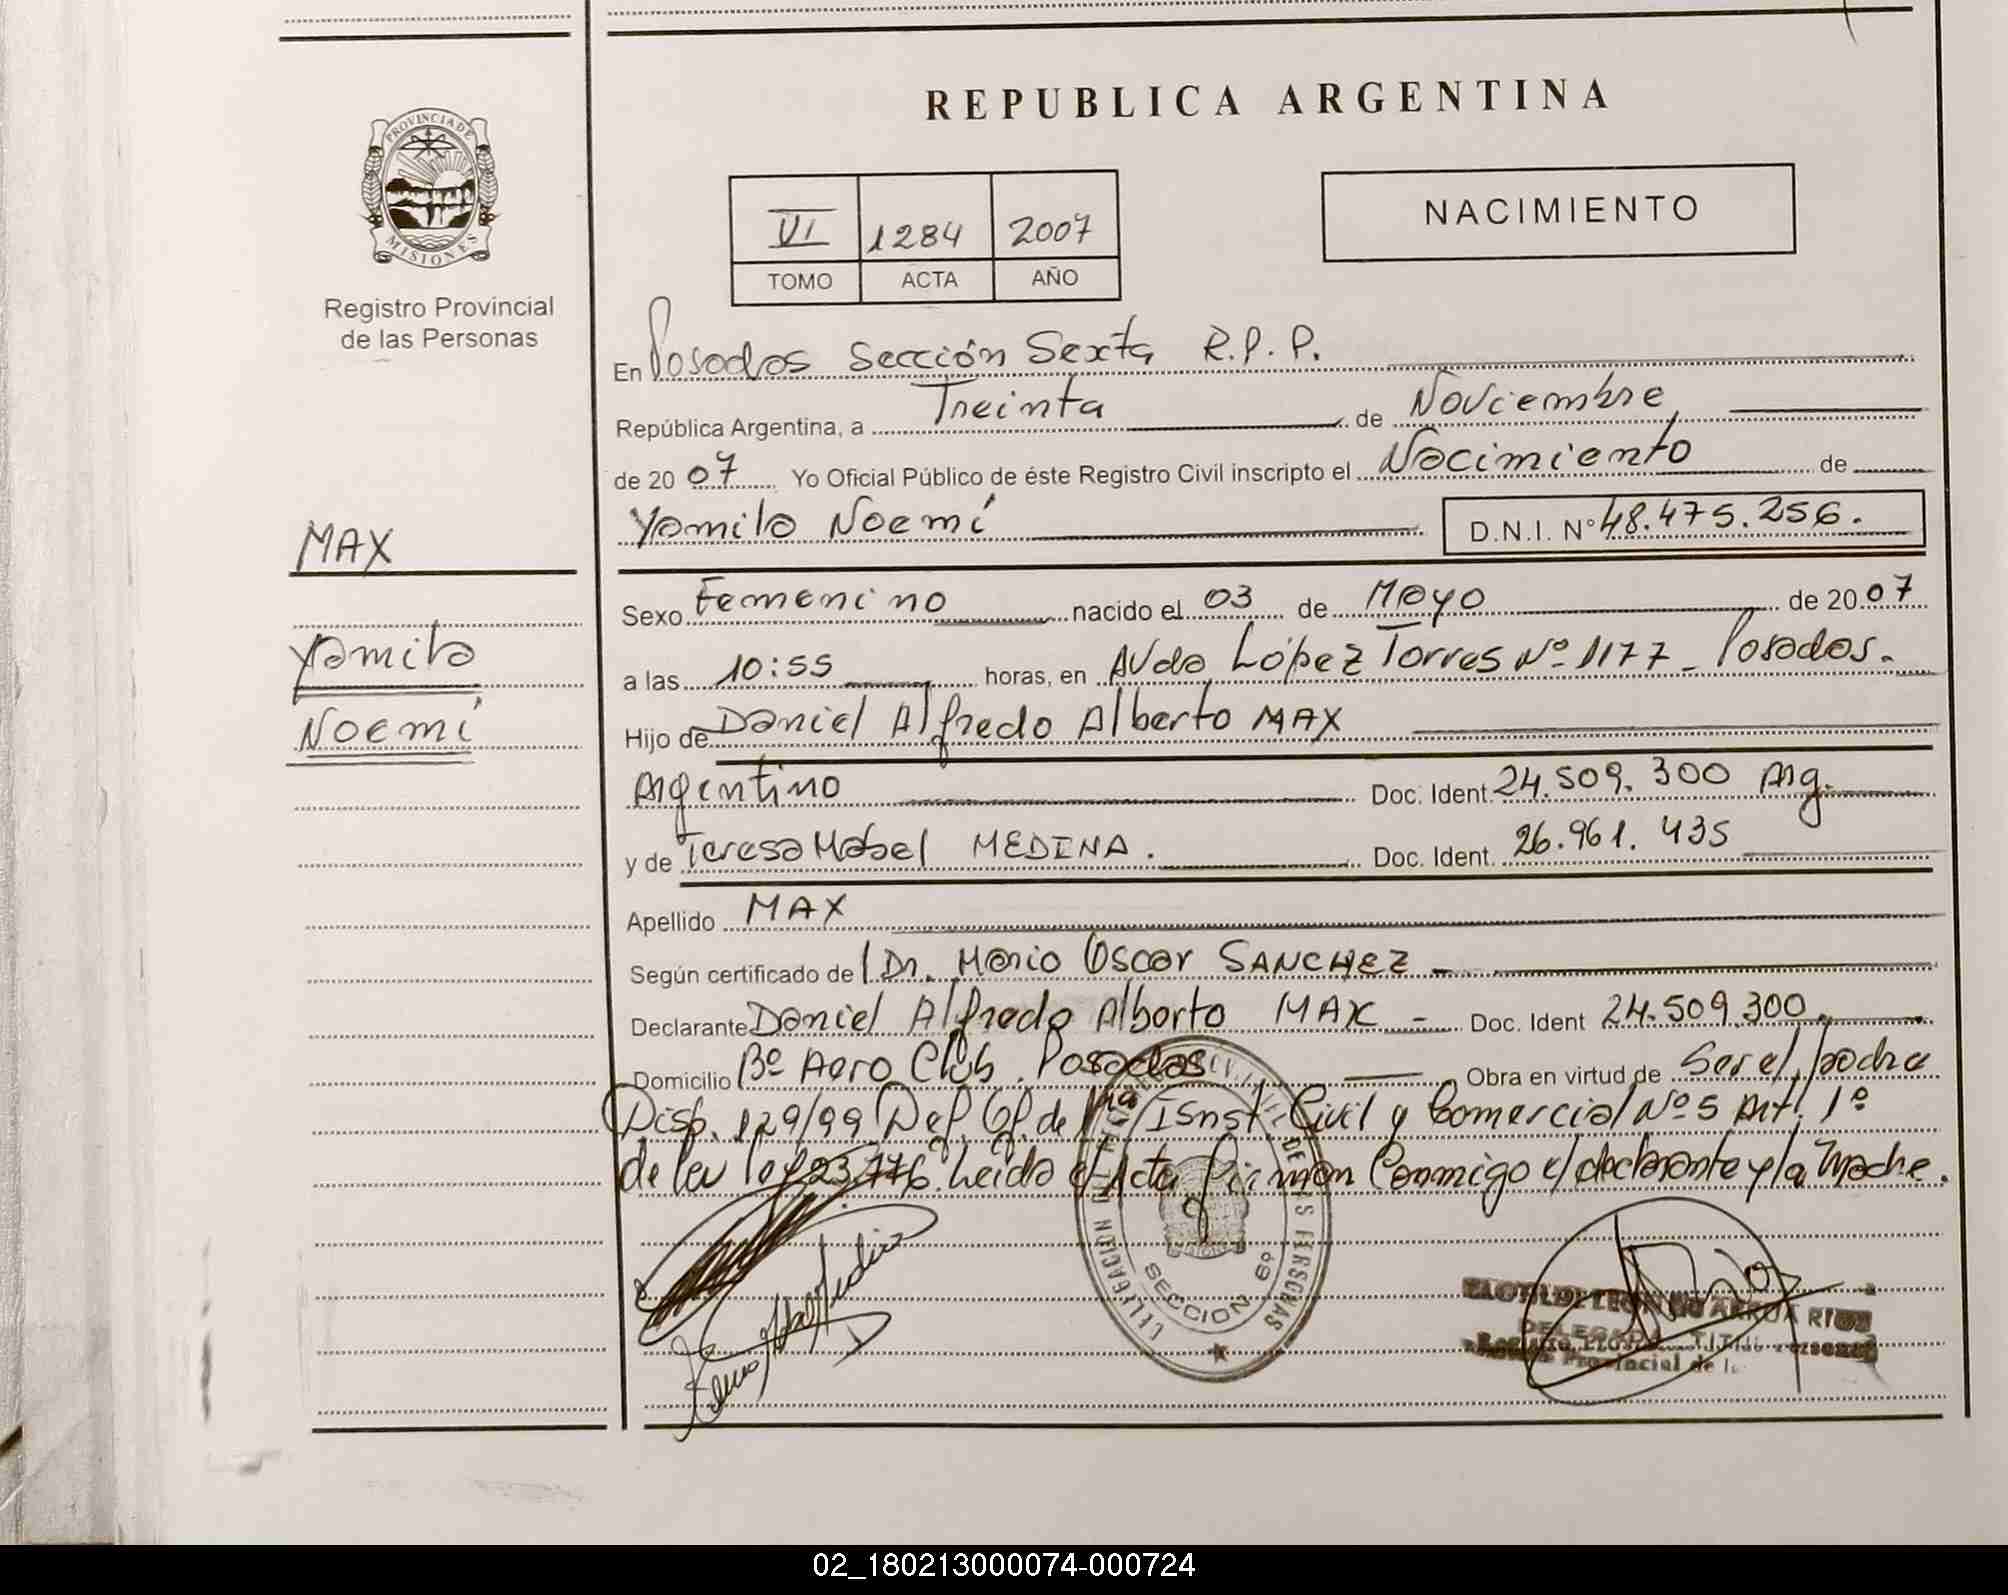 REPUBLICA ARGENTINA
PROVINCIA DE
MISIONES
Registro Provincial
de las Personas
VI 1284 2007
TOMO ACTA AÑO
NACIMIENTO
En Posadas Sección Sexta R.P.P.
República Argentina, a Treinta de Noviembre
de 2007 Yo Oficial Público de éste Registro Civil inscripto el Nacimiento de
Yamila Noemí D.N.I. Nº 48.475.256.
MAX
Yamila
Noemí
Sexo Femenino nacido el 03 de Mayo de 2007
a las 10:55 horas, en Avda López Torres Nº 1177 - Posadas.
Hijo de Daniel Alfredo Alberto MAX
Argentino Doc. Ident. 24.509.300 Arg.
y de Teresa Mabel MEDINA. Doc. Ident. 26.961.435
Apellido MAX
Según certificado de Dr. Mario Oscar SANCHEZ -
Declarante Daniel Alfredo Alberto MAX - Doc. Ident 24.509.300.
Domicilio Bº Aero Club. Posadas Obra en virtud de Ser el padre
Disp. 129/99 Def. Of. de 1ra Isnst. Civil y Comercial Nº 5 Art. 1º
de ley 23.776. Leida el Acta firman Conmigo el declarante y la Madre.
DE LAS PERSONAS
SECCION 6º
Provincial de
02_180213000074-000724